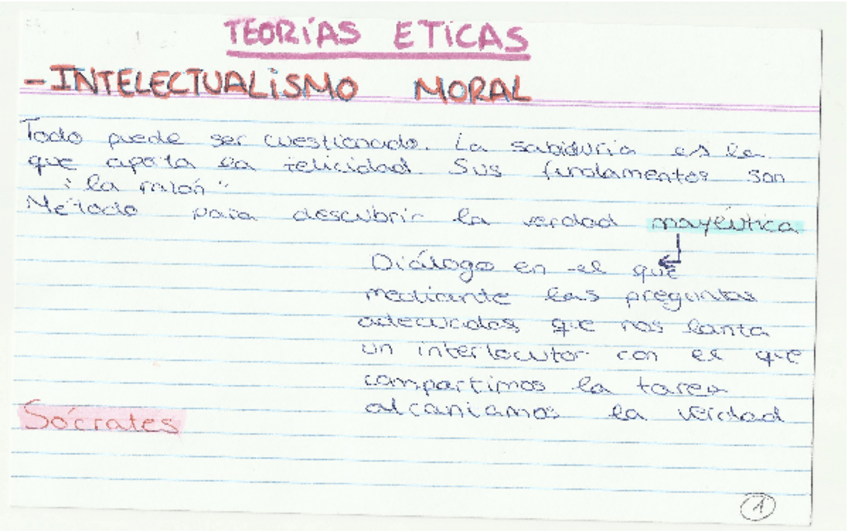 TEORÍAS ETICAS
- INTELECTUALISMO MORAL
Todo puede ser cuestionado. La sabiduria es la
que aporta la felicidad. Sus fundamentos son
"la razón"
Método para descubrir la verdad mayéutica
Diálogo en el que
mediante las preguntas
adecuadas que nos lanza
un interlocutor con el que
compartimos la tarea
alcanzamos la verdad
Sócrates
1